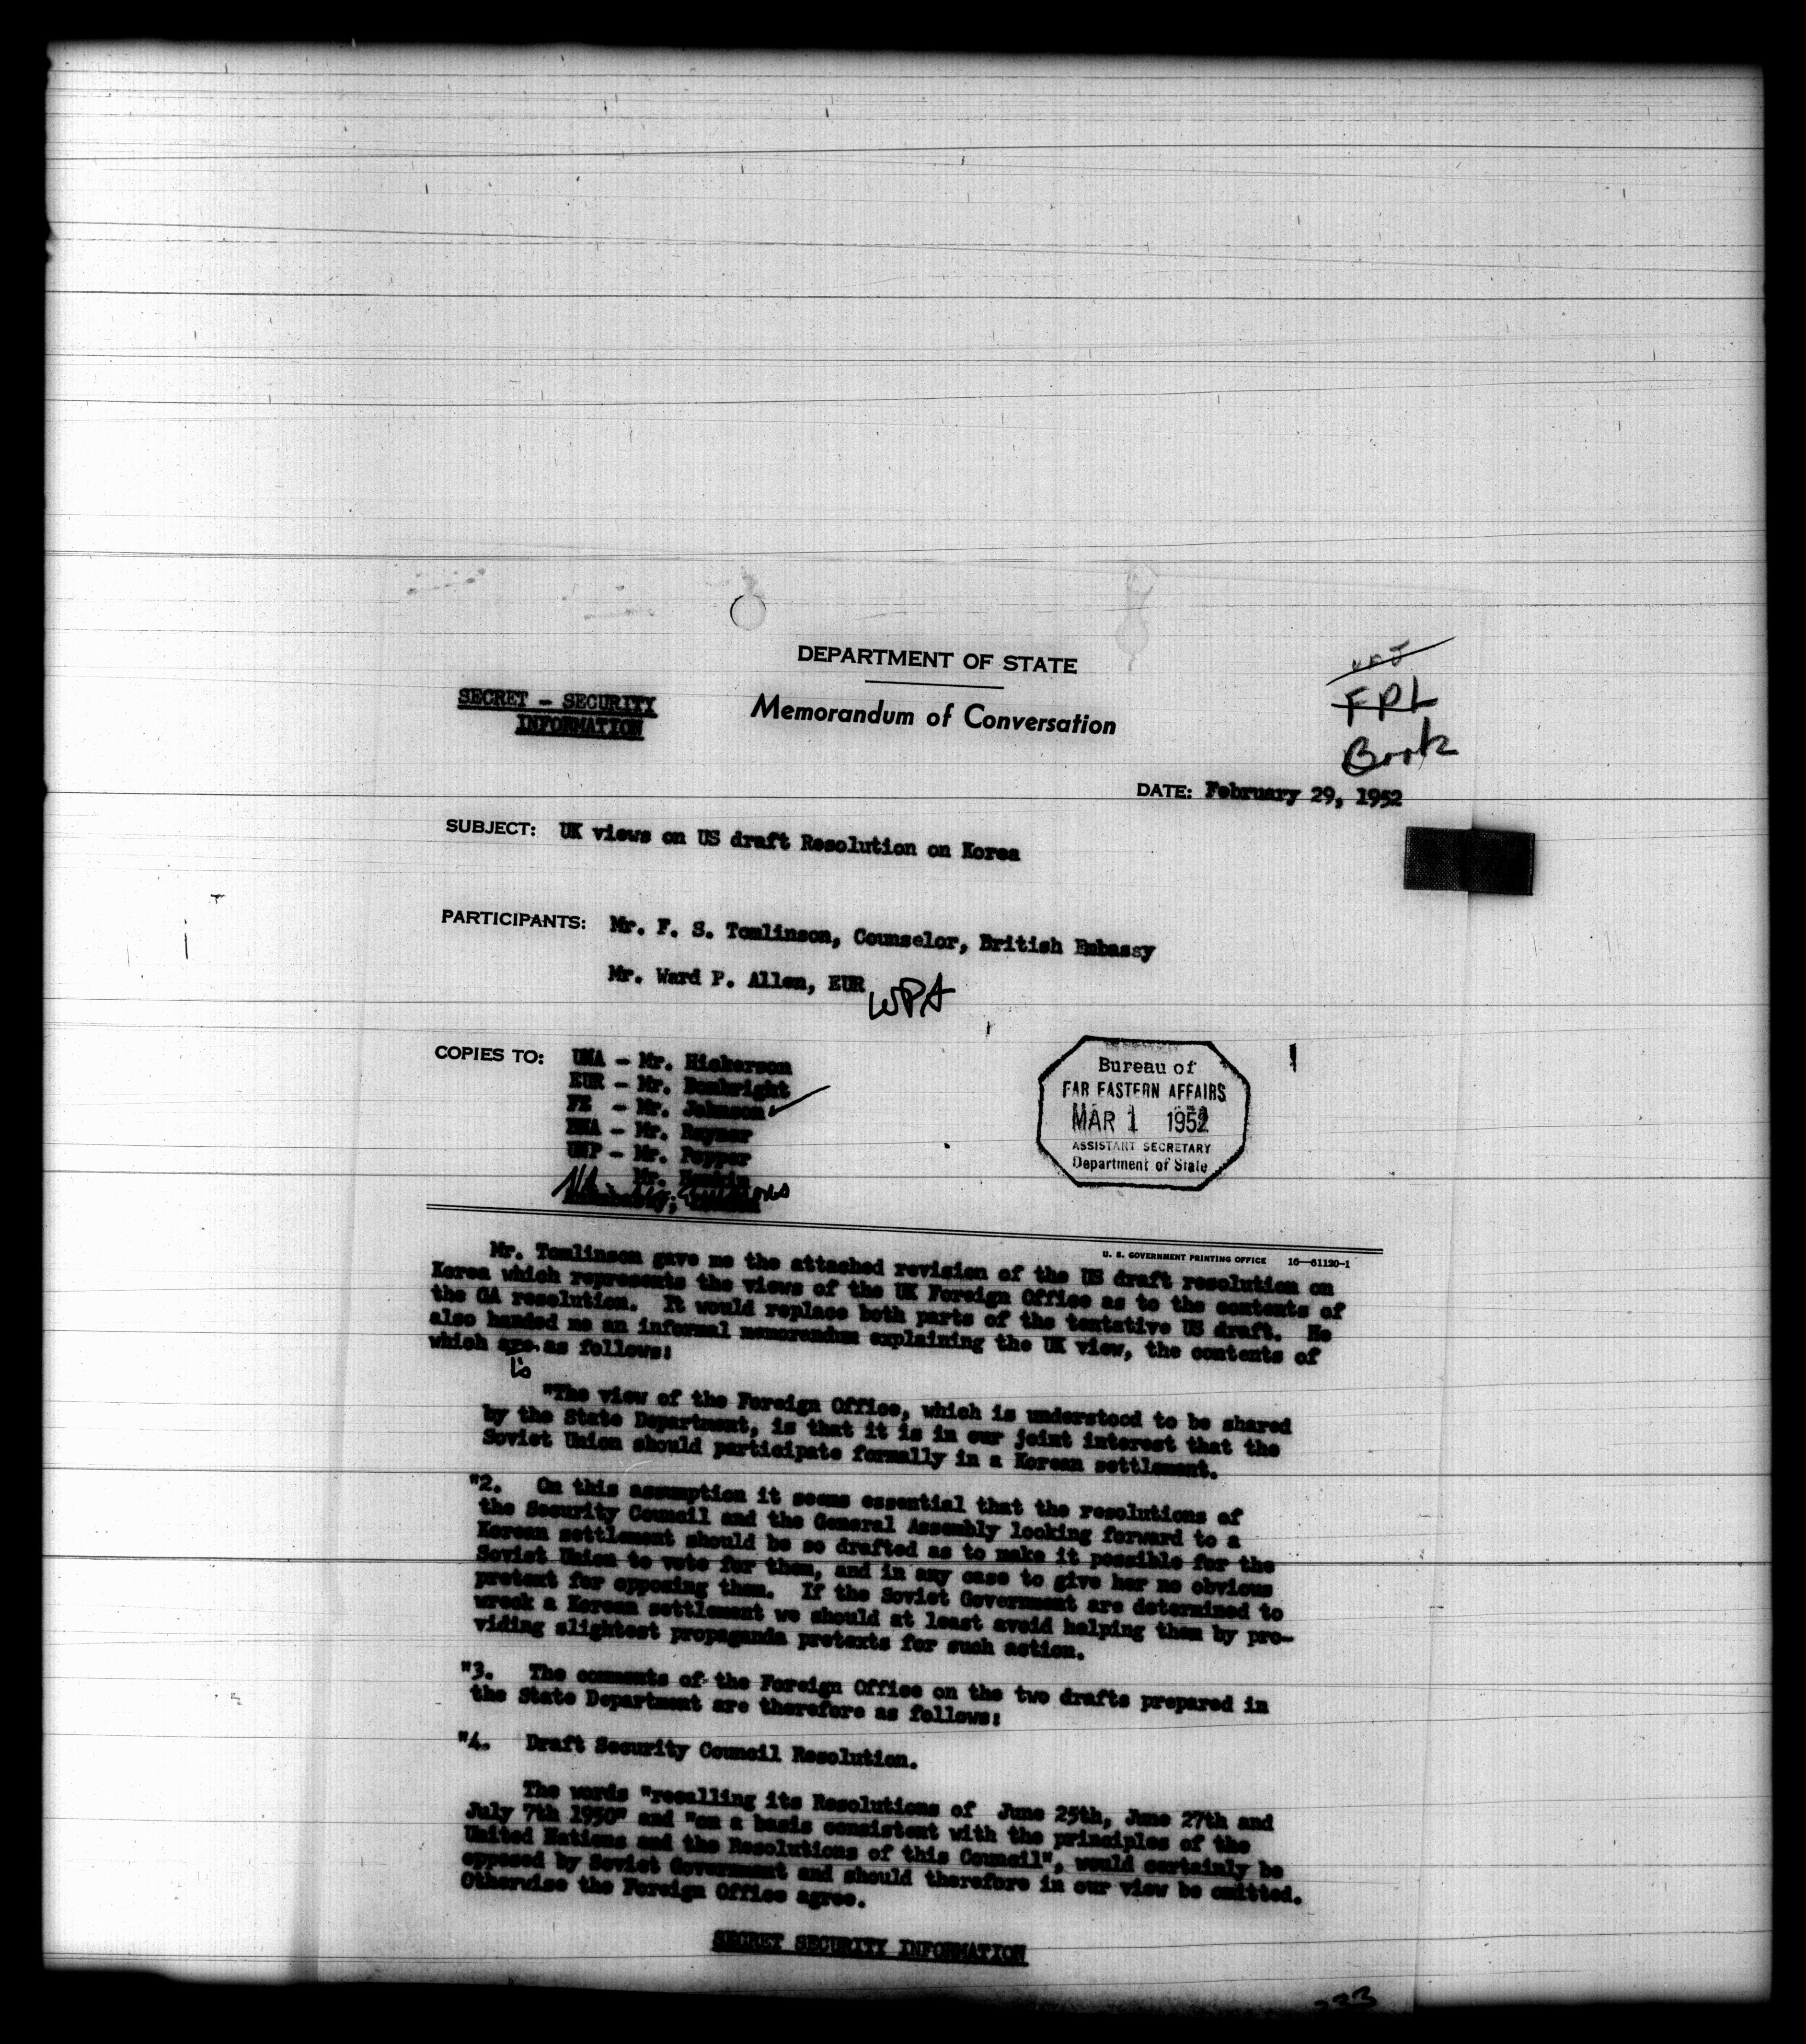 DEPARTMENT OF STATE
SECRET - SECURITY
INFORMATION
Memorandum of Conversation
FPL
Book
DATE: February 29, 1952
SUBJECT: UK views on US draft Resolution on Korea
PARTICIPANTS: Mr. F. S. Tomlinson, Counselor, British Embassy
Mr. Ward P. Allen, EUR WPA
COPIES TO: UNA - Mr. Hickerson
EUR - Mr. Bonbright
FE - Mr. Johnson
BNA - Mr. Raynor
UNP - Mr. Popper
Mr.
NA -
Bureau of
FAR EASTERN AFFAIRS
MAR 1 1952
ASSISTANT SECRETARY
Department of State
U. S. GOVERNMENT PRINTING OFFICE 16—61120-1
Mr. Tomlinson gave me the attached revision of the US draft resolution on
Korea which represents the views of the UK Foreign Office as to the contents of
the GA resolution. It would replace both parts of the tentative US draft. He
also handed me an informal memorandum explaining the UK view, the contents of
which are as follows:
is
"The view of the Foreign Office, which is understood to be shared
by the State Department, is that it is in our joint interest that the
Soviet Union should participate formally in a Korean settlement.
"2. On this assumption it seems essential that the resolutions of
the Security Council and the General Assembly looking forward to a
Korean settlement should be so drafted as to make it possible for the
Soviet Union to vote for them, and in any case to give her no obvious
pretext for opposing them. If the Soviet Government are determined to
wreck a Korean settlement we should at least avoid helping them by pro-
viding slightest propaganda pretexts for such action.
"3. The comments of the Foreign Office on the two drafts prepared in
the State Department are therefore as follows:
"4. Draft Security Council Resolution.
The words "recalling its Resolutions of June 25th, June 27th and
July 7th 1950" and "on a basis consistent with the principles of the
United Nations and the Resolutions of this Council", would certainly be
opposed by Soviet Government and should therefore in our view be omitted.
Otherwise the Foreign Office agree.
SECRET SECURITY INFORMATION